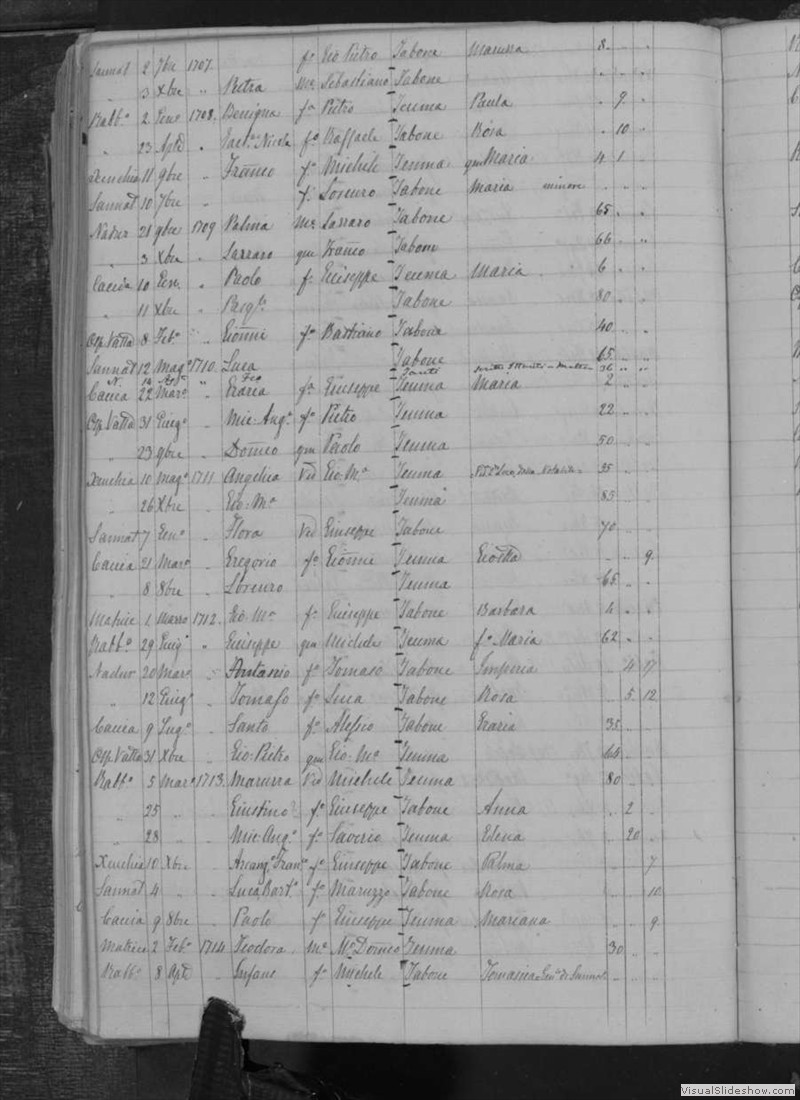 Sannat 2 7bre 1707. fo Gio Pietro Tabone Maruzza 8
" 3 Xbre " Pietra Me Sebastiano Tabone
Rabbo 2 Geno 1708. Benigna fa Pietro Teuma Paula 9
" 23 Aple " Nicola fo Raffaele Tabone Rosa 10
Xeuchia 11 9bre " Franco fo Michele Teuma qm Maria 4 1
Sannat 10 7bre " fo Lorenzo Tabone Maria minore
Nadur 21 9bre 1709 Palma Me Lazzaro Tabone 65
" 3 Xbre " Lazzaro qm Franco Tabone 66
Caccia 10 Gen. " Paolo fo Giuseppe Teuma Maria 6
" 11 Xbre " Tabone 80
Osp. Vatta 8 Febo " Gionni fo Bastiano Tabone 40
Sannat 12 Mago 1710. Luca Tabone 65
36
Caccia 22 Marzo " Grazia fa Giuseppe Teuma Maria 2
Osp. Vatta 31 Giugo " Mic-Ango fo Pietro Teuma 22
" 23 9bre " Domco qm Paolo Teuma 50
Xeuchia 10 Mago 1711. Angelica Vid Gio Ma Teuma 35
" 26 Xbre " Gio-Ma Teuma 85
Sannat 7 Geno " Flora Vid Giuseppe Tabone 70
Caccia 21 Maro " Gregorio fo Gionni Teuma 9
" 8 8bre " Lorenzo Teuma 65
Matrice 1 Marzo 1712. Gio. Ma fo Giuseppe Tabone Barbara 4
Rabbo 29 Giugo " Giuseppe qm Michele Teuma fo Maria 62
Nadur 20 Maro " Antonio fo Tomaso Tabone Imperia 4 17
" 12 Giugo " Tomaso fo Luca Tabone Rosa 5 12
Caccia 9 Lugo " Santo fo Alessio Tabone Grazia 35
Osp. Vatta 31 Xbre " Gio-Pietro qm Gio. Ma Teuma 65
Rabbo 5 Maro 1713. Maruzza Vid Michele Teuma 80
" 25 " Giustino fo Giuseppe Tabone Anna 2
" 28 " Mic-Ango fo Saverio Teuma Elena 20
Xeuchia 10 Xbre Arcango Franco fo Giuseppe Tabone Palma 7
Sannat 4 " Luca Barto fo Maruzzo Tabone Rosa 10
Caccia 9 8bre " Paolo fo Giuseppe Teuma Mariana 9
Matrice 2 Febo 1714. Teodora Me Mo Domco Teuma 30
Rabbo 8 Aple " Infane fo Michele Tabone Tomasina
VisualSlideshow.com